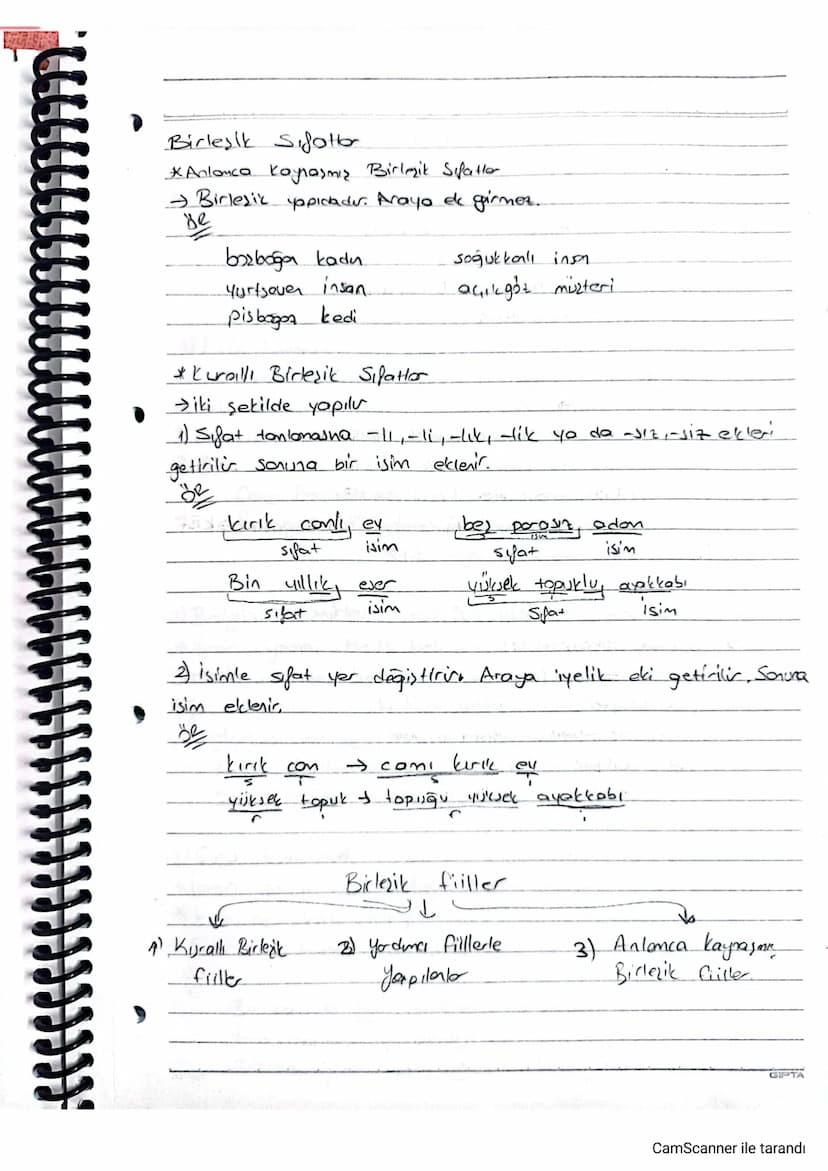 Birleşik Sıfatlar
*Anlamca Kaynaşmış Birleşik Sıfatlar
→ Birleşik yapıdadır. Araya ek girmez.
ÖR
bozboğaz kadın soğukkanlı insan
yurtsever insan açıkgöz müşteri
pisboğaz kedi
*Kurallı Birleşik Sıfatlar
→ iki şekilde yapılır
1) Sıfat tamlamasına -lı, -li, -lık, -lik ya da -sız, -siz ekleri
getirilir sonuna bir isim eklenir.
ÖR
kırık camlı ev beş parasız adam
sıfat isim sıfat isim isim
Bin yıllık eser yüksek topuklu ayakkabı
sıfat isim s sıfat isim
2) İsimle sıfat yer değiştirir. Araya iyelik eki getirilir. Sonuna
isim eklenir.
ÖR
kırık cam → camı kırık ev
s i s i
yüksek topuk → topuğu yüksek ayakkabı
i i
Birleşik fiiller
1) Kurallı Birleşik 2) Yardımcı fiillerle 3) Anlamca kaynaşmış
fiiller Yapılanlar Birleşik fiiller
GIPTA
CamScanner ile tarandı